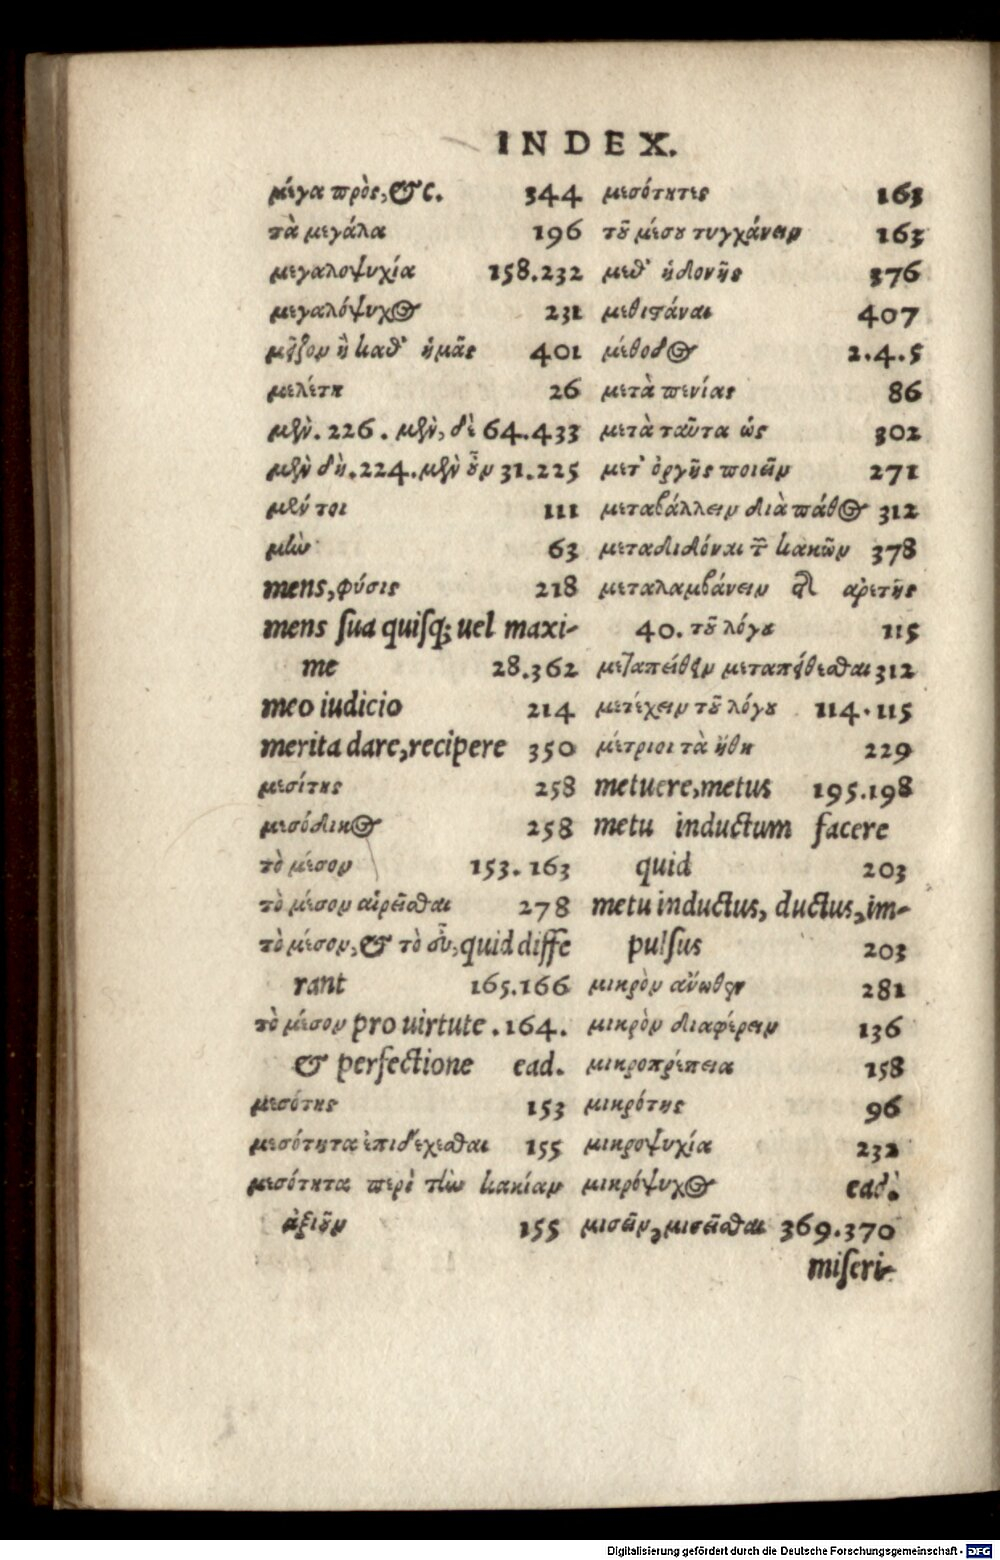 INDEX.
μέγα πρὸς, &c. 344
τὰ μεγάλα 196
μεγαλοψυχία 158.232
μεγαλόψυχος 231
μεῖζον ἢ καθ' ἡμᾶς 401
μελέτη 26
μὲν. 226. μὲν, δὲ 64.433
μὲν δὴ. 224. μὲν οὖν 31.225
μέν τοι 111
μὴν 63
mens, φύσις 218
mens sua quisq; uel maxi-
me 28.362
meo iudicio 214
merita dare, recipere 350
μεσίτης 258
μεσόδικος 258
τὸ μέσον 153. 163
τὸ μέσον αἱρεῖσθαι 278
τὸ μέσον, & τὸ εὖ, quid diffe
rant 165.166
τὸ μέσον pro uirtute. 164.
& perfectione ead.
μεσότης 153
μεσότητα ἐπιδέχεσθαι 155
μεσότητα περὶ τὴν κακίαν
ἀξιοῦν 155
μεσότητες 163
τοῦ μέσου τυγχάνειν 163
μεθ' ἡδονῆς 376
μεθιστάναι 407
μέθοδος 2.4.5
μετὰ πενίας 86
μετὰ ταῦτα ὡς 302
μετ' ὀργῆς ποιῶν 271
μεταβάλλειν διὰ πάθος 312
μεταδιδόναι τῶν κακῶν 378
μεταλαμβάνειν ἀρετῆς
40. τοῦ λόγου 115
μεταπείθειν μεταπείθεσθαι 312
μετέχειν τοῦ λόγου 114.115
μέτριοι τὰ ἤθη 229
metuere, metus 195.198
metu inductum facere
quid 203
metu inductus, ductus, im-
pulsus 203
μικρὸν ἄνωθεν 281
μικρὸν διαφέρειν 136
μικροπρέπεια 158
μικρότης 96
μικροψυχία 232
μικρόψυχος ead.
μισεῖν, μισεῖσθαι 369.370
miseri-
Digitalisierung gefördert durch die Deutsche Forschungsgemeinschaft - DFG